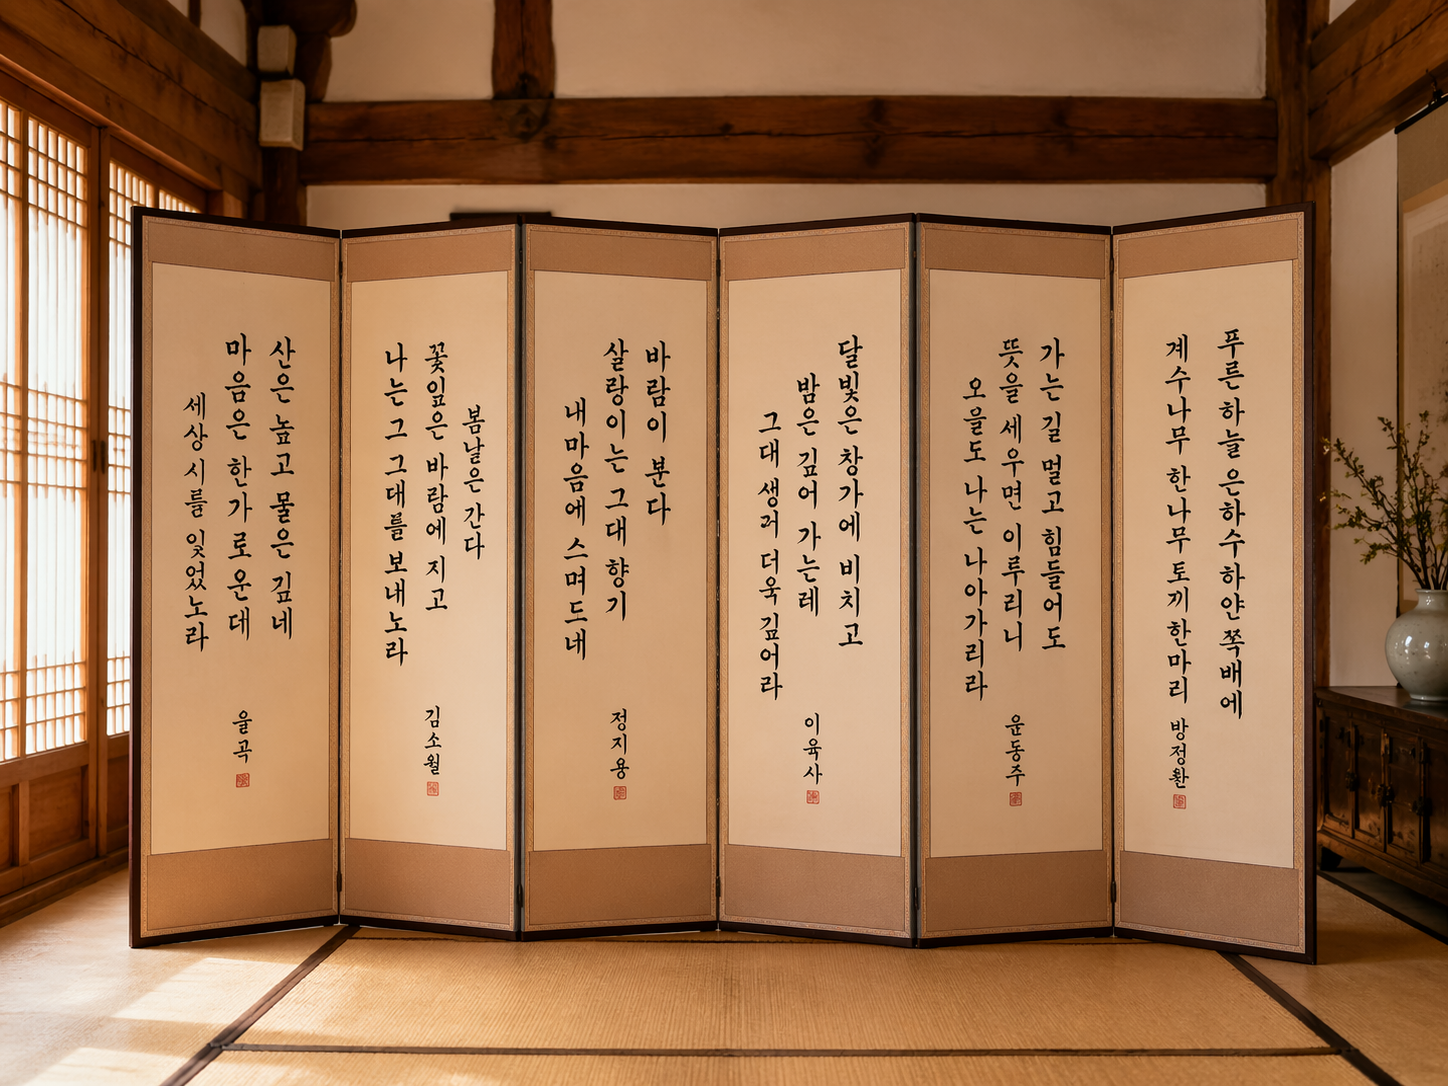 푸른 하늘 은하수 하얀 쪽배에
계수나무 한 나무 토끼 한 마리
방정환
가는 길 멀고 힘들어도
뜻을 세우면 이루리니
오늘도 나는 나아가리라
윤동주
달빛은 창가에 비치고
밤은 깊어 가는데
그대 생각 더욱 깊어라
이육사
바람이 분다
살랑이는 그대 향기
내 마음에 스며드네
정지용
봄날은 간다
꽃잎은 바람에 지고
나는 그 그대를 보내노라
김소월
산은 높고 물은 깊네
마음은 한가로운데
세상 시를 잊었노라
율곡